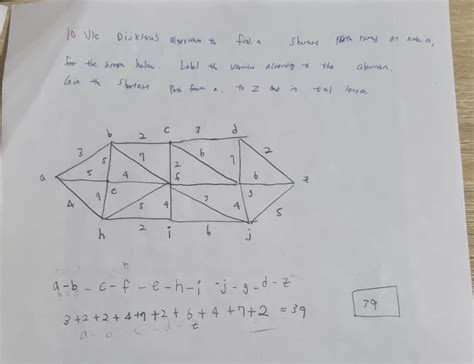 10 Use Dijkstra's algorithm to find a shortest path rooted at node a,
for the graph below. Label the vertices according to the algorithm.
Give the shortest path from a, to z and its total length
b 2 c 3 d
3 5 7 2 6 7 2
a 5 e 4 f g 6 z
4 9 5 4 7 4 5
h 2 i 6 j
a-b - c - f - e - h - i - j - g - d - z
3+2+2+4+9+2+6+4+7+2 = 39
39
a - b - c - d - z